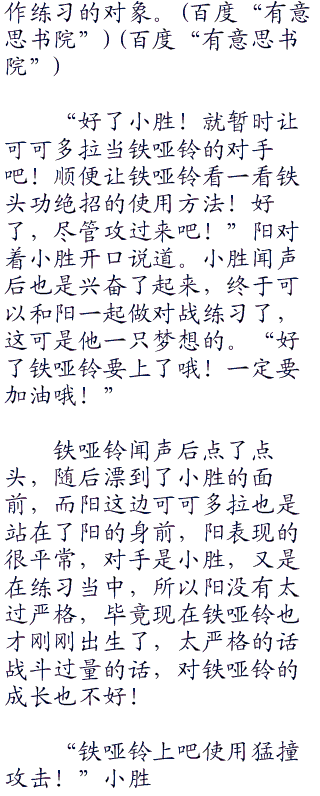 作练习的对象。(百度“有意
思书院”)(百度“有意思书
院”)
“好了小胜！就暂时让
可可多拉当铁哑铃的对手
吧！顺便让铁哑铃看一看铁
头功绝招的使用方法！好
了，尽管攻过来吧！”阳对
着小胜开口说道。小胜闻声
后也是兴奋了起来，终于可
以和阳一起做对战练习了，
这可是他一只梦想的。“好
了铁哑铃要上了哦！一定要
加油哦！”
铁哑铃闻声后点了点
头，随后漂到了小胜的面
前，而阳这边可可多拉也是
站在了阳的身前，阳表现的
很平常，对手是小胜，又是
在练习当中，所以阳没有太
过严格，毕竟现在铁哑铃也
才刚刚出生了，太严格的话
战斗过量的话，对铁哑铃的
成长也不好！
“铁哑铃上吧使用猛撞
攻击！”小胜